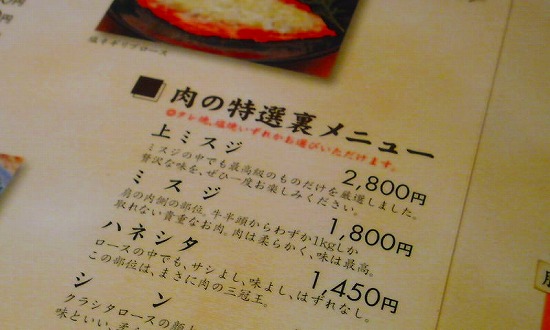 塩チギリロース
肉の特選裏メニュー
◎タレ焼、塩焼いずれかお選びいただけます。
上ミスジ 2,800円
ミスジの中でも最高級のものだけを厳選しました。
贅沢な味を、ぜひ一度お楽しみください。
ミスジ 1,800円
肩の内側の部位。牛半頭からわずか1kgしか
取れない貴重なお肉。肉は柔らかく、味は最高。
ハネシタ 1,450円
ロースの中でも、サシよし、味よし、はずれなし。
この部位は、まさに肉の三冠王。
シン
クラシタロースの
味といい、